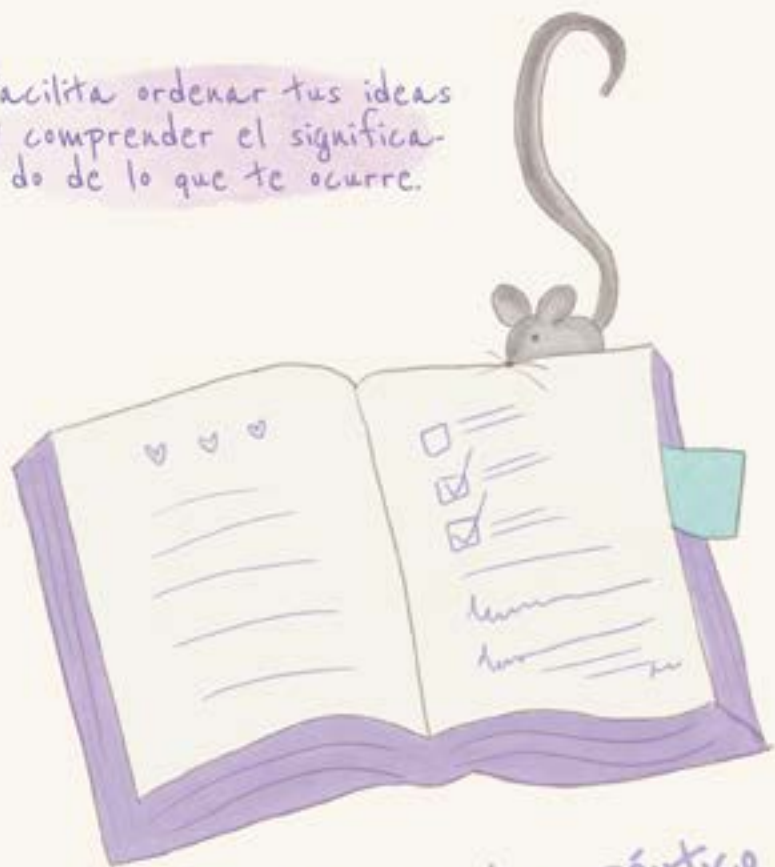 facilita ordenar tus ideas
comprender el significa-
do de lo que te ocurre.